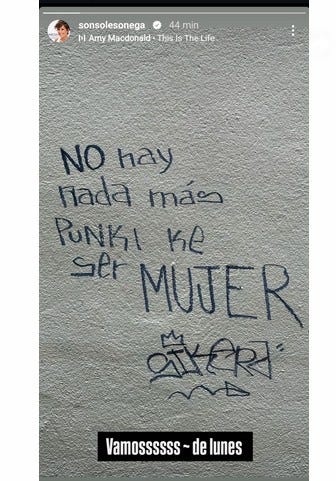 sonsolesonega 44 min
Amy Macdonald • This Is The Life
NO hay
nada más
PUNKI KE
ser MUJER
Vamossssss ~ de lunes